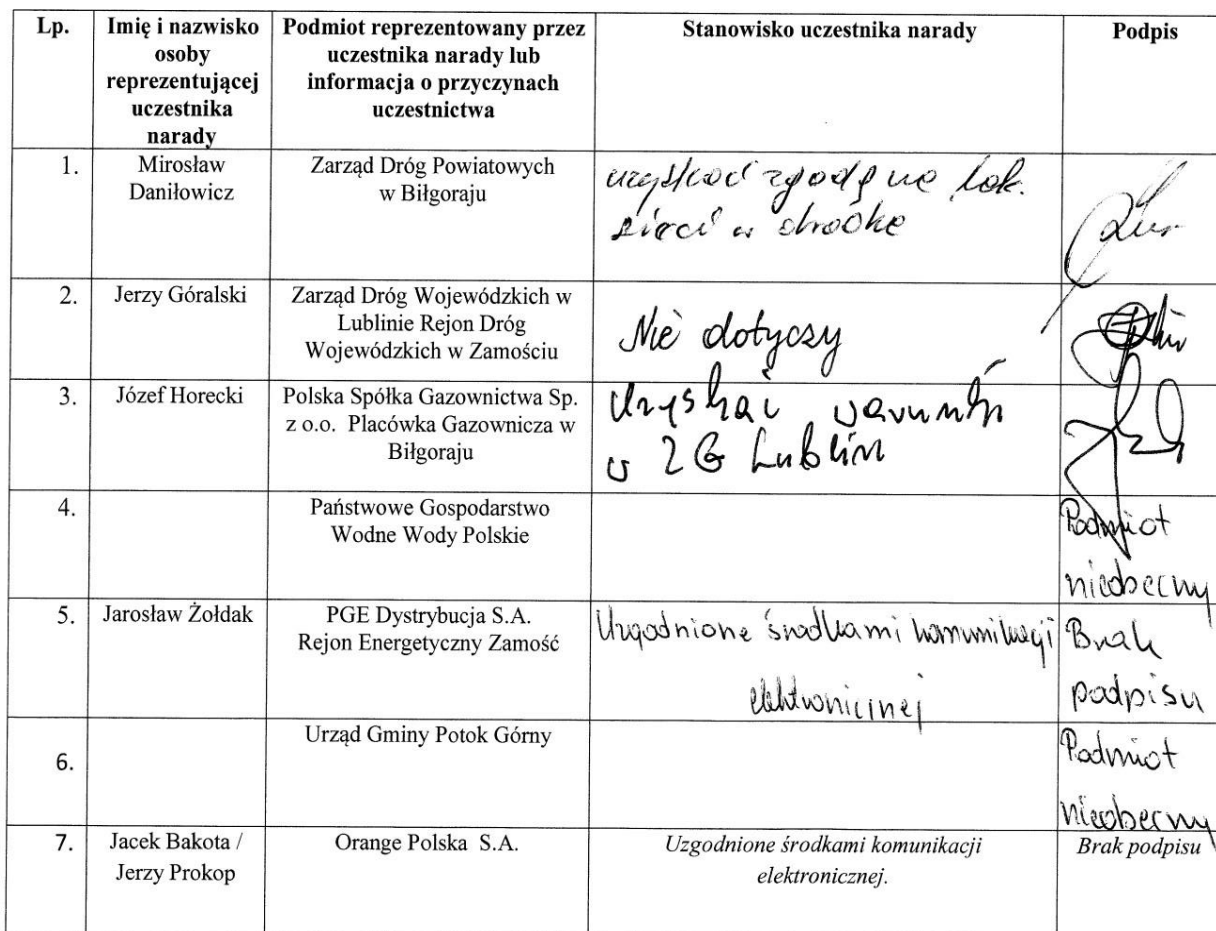 Lp.
Imię i nazwisko
osoby
reprezentującej
uczestnika
narady
Podmiot reprezentowany przez
uczestnika narady lub
informacja o przyczynach
uczestnictwa
Stanowisko uczestnika narady
Podpis
1.
Mirosław
Daniłowicz
Zarząd Dróg Powiatowych
w Biłgoraju
uzyskać zgodę na lok.
sieci w drodze
2.
Jerzy Góralski
Zarząd Dróg Wojewódzkich w
Lublinie Rejon Dróg
Wojewódzkich w Zamościu
Nie dotyczy
3.
Józef Horecki
Polska Spółka Gazownictwa Sp.
z o.o. Placówka Gazownicza w
Biłgoraju
Uzyskać warunki
w ZG Lublin
4.
Państwowe Gospodarstwo
Wodne Wody Polskie
Podmiot
nieobecny
5.
Jarosław Żołdak
PGE Dystrybucja S.A.
Rejon Energetyczny Zamość
Uzgodnione środkami komunikacji
elektronicznej
Brak
podpisu
6.
Urząd Gminy Potok Górny
Podmiot
nieobecny
7.
Jacek Bakota /
Jerzy Prokop
Orange Polska S.A.
Uzgodnione środkami komunikacji
elektronicznej.
Brak podpisu